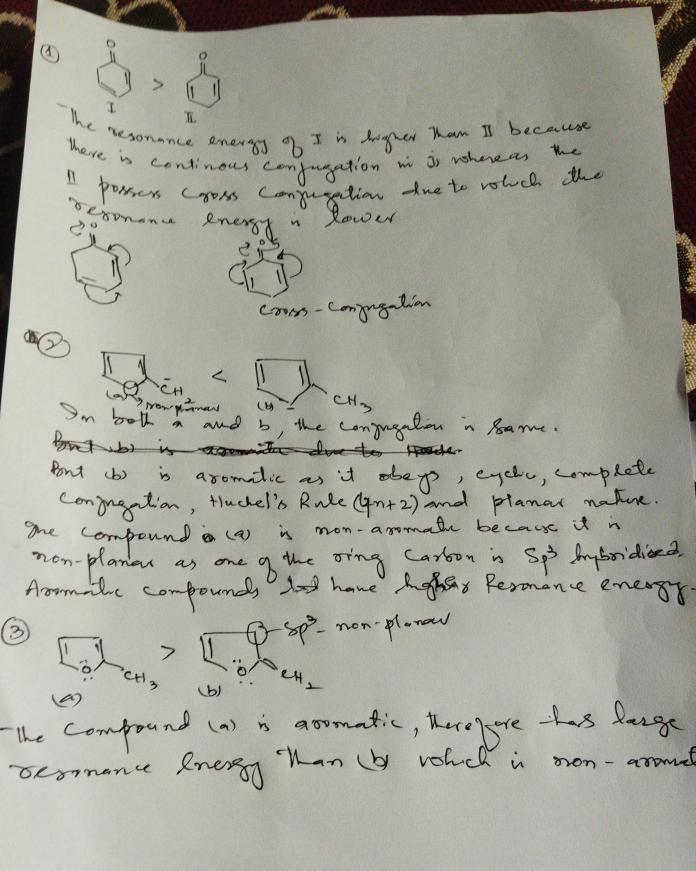 ①
O O
>
I II
The resonance energy of I is higher than II because
there is continous conjugation in I, whereas the
II possess cross conjugation due to which the
resonance energy is lower
O O
cross-conjugation
②
(a) CH2 < (b) CH3
non planar
In both a and b, the conjugation is same.
But (b) is aromatic due to
But (b) is aromatic as it obeys, cyclic, complete
conjugation, Huckel's Rule (4n+2) and planar nature.
The compound (a) is non-aromatic because it is
non-planar as one of the ring carbon is Sp3 hybridised.
Aromatic compounds have higher Resonance energy.
③
Sp3 - non-planar
O CH3 > O CH2
(a) (b)
The compound (a) is aromatic, therefore has large
resonance energy than (b) which is non-aromat